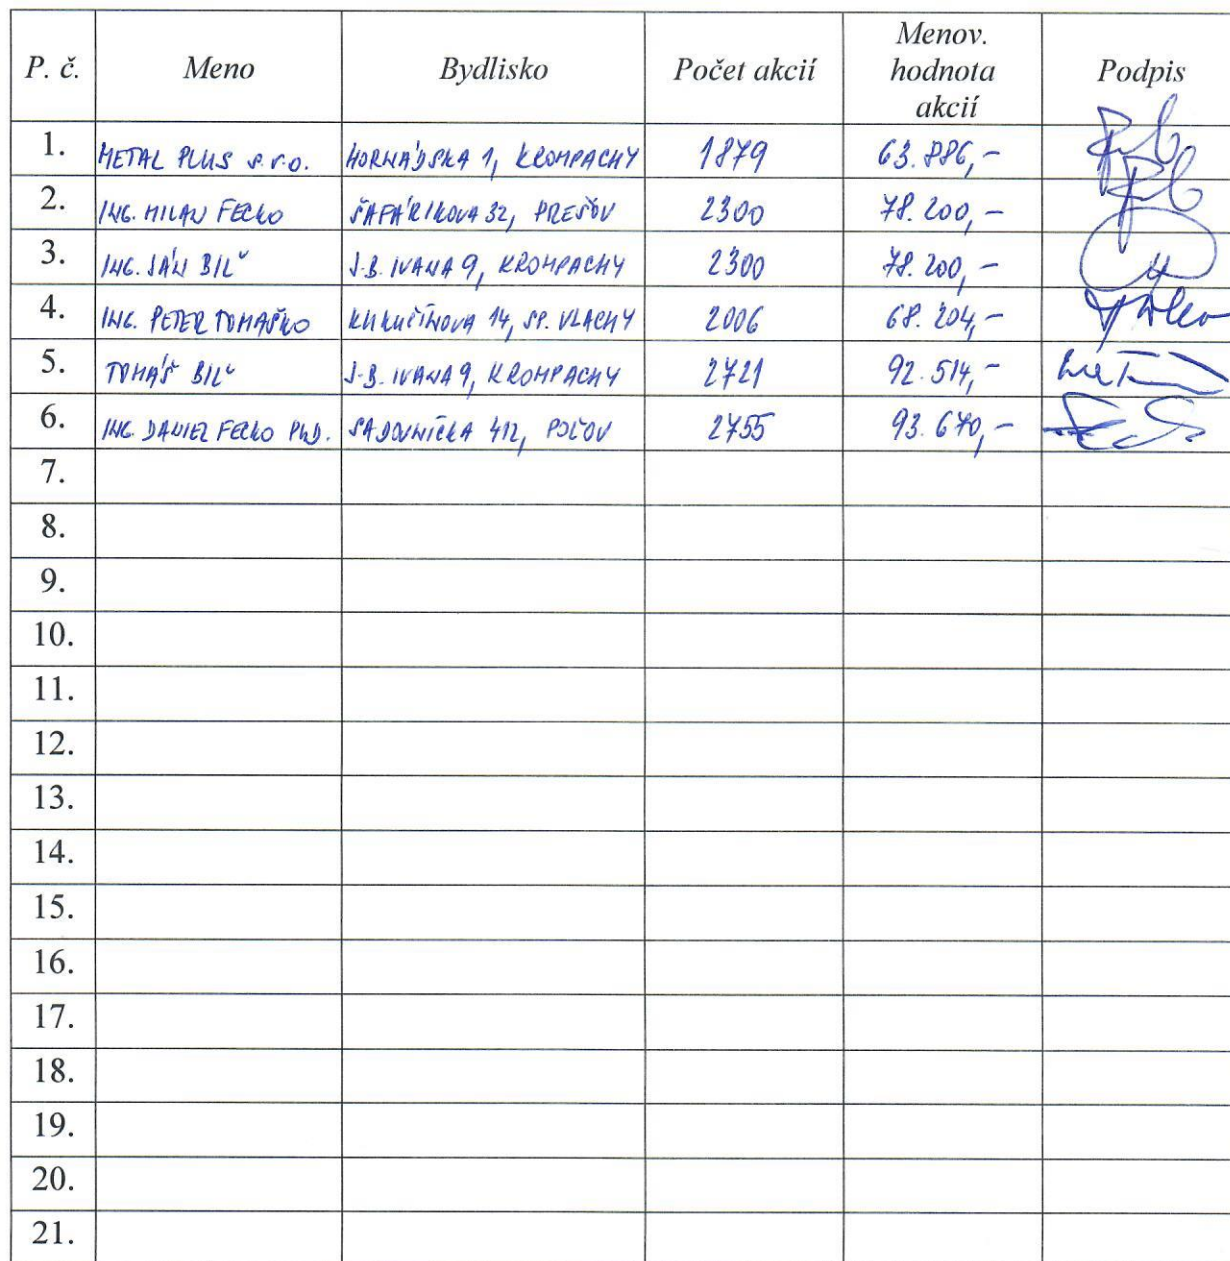 P. č. Meno Bydlisko Počet akcií Menov. hodnota akcií Podpis
1. METAL PLUS s.r.o. HORNÁDSKA 1, KROMPACHY 1879 63.886,-
2. ING. MILAN FECKO ŠAFÁRIKOVA 32, PREŠOV 2300 78.200,-
3. ING. JÁN BILˇ J.B. IVANA 9, KROMPACHY 2300 78.200,-
4. ING. PETER TOMAŠKO KUKUČÍNOVA 14, SP. VLACHY 2006 68.204,-
5. TOMÁŠ BILˇ J.B. IVANA 9, KROMPACHY 2721 92.514,-
6. ING. DANIEL FECKO PhD. SADOVNÍCKA 412, POĽOV 2755 93.670,-
7.
8.
9.
10.
11.
12.
13.
14.
15.
16.
17.
18.
19.
20.
21.